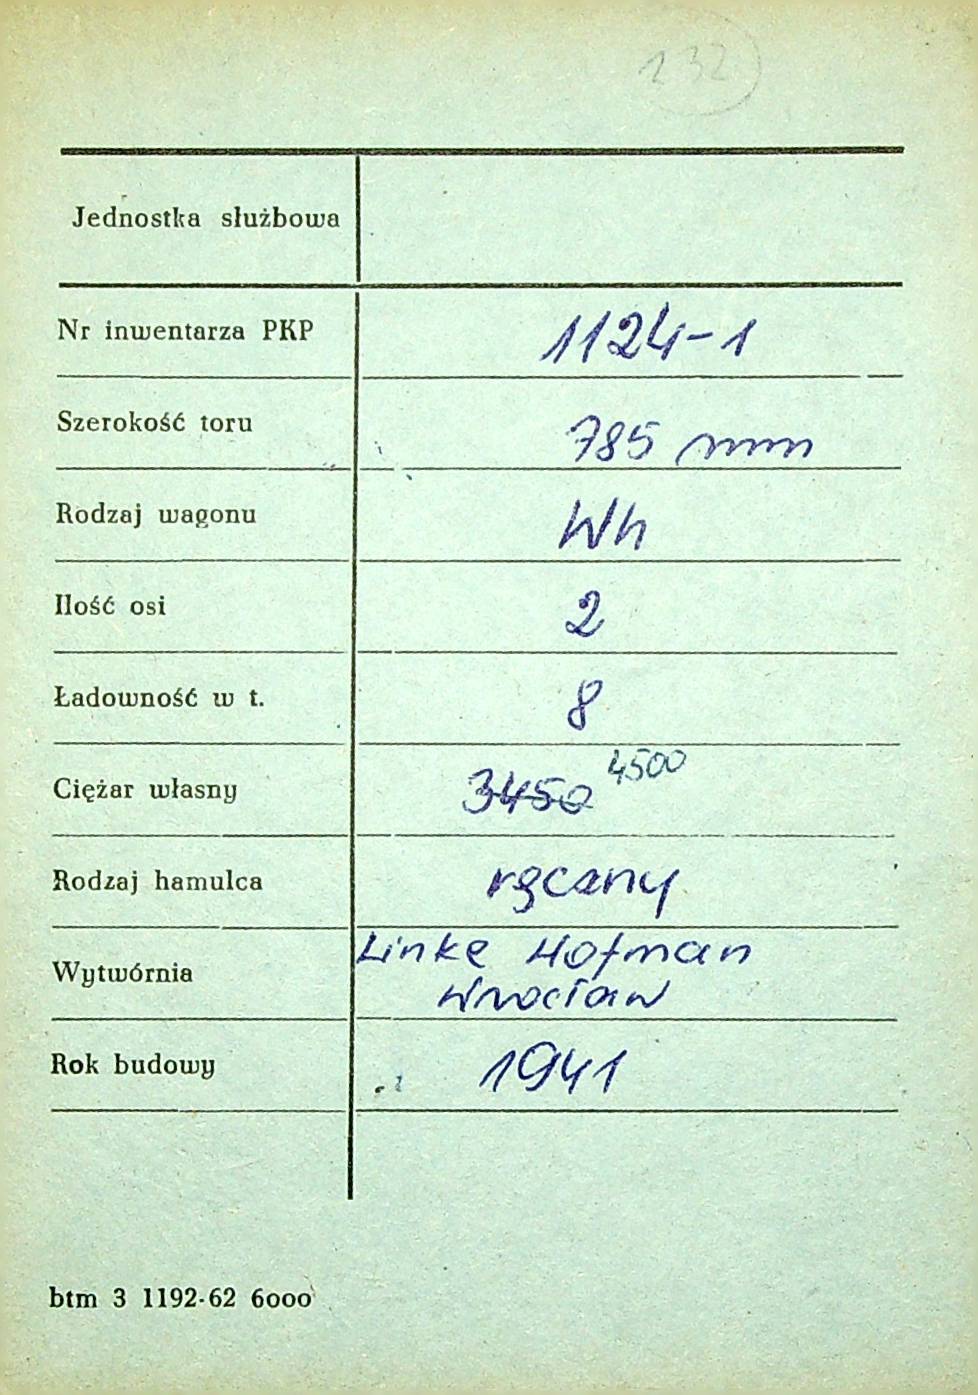 132
Jednostka służbowa
Nr inwentarza PKP 1124-1
Szerokość toru 785 mm
Rodzaj wagonu Wh
Ilość osi 2
Ładowność w t. 8
Ciężar własny 3450 4500
Rodzaj hamulca ręczny
Wytwórnia Linke Hofman
Wrocław
Rok budowy 1941
btm 3 1192-62 6000